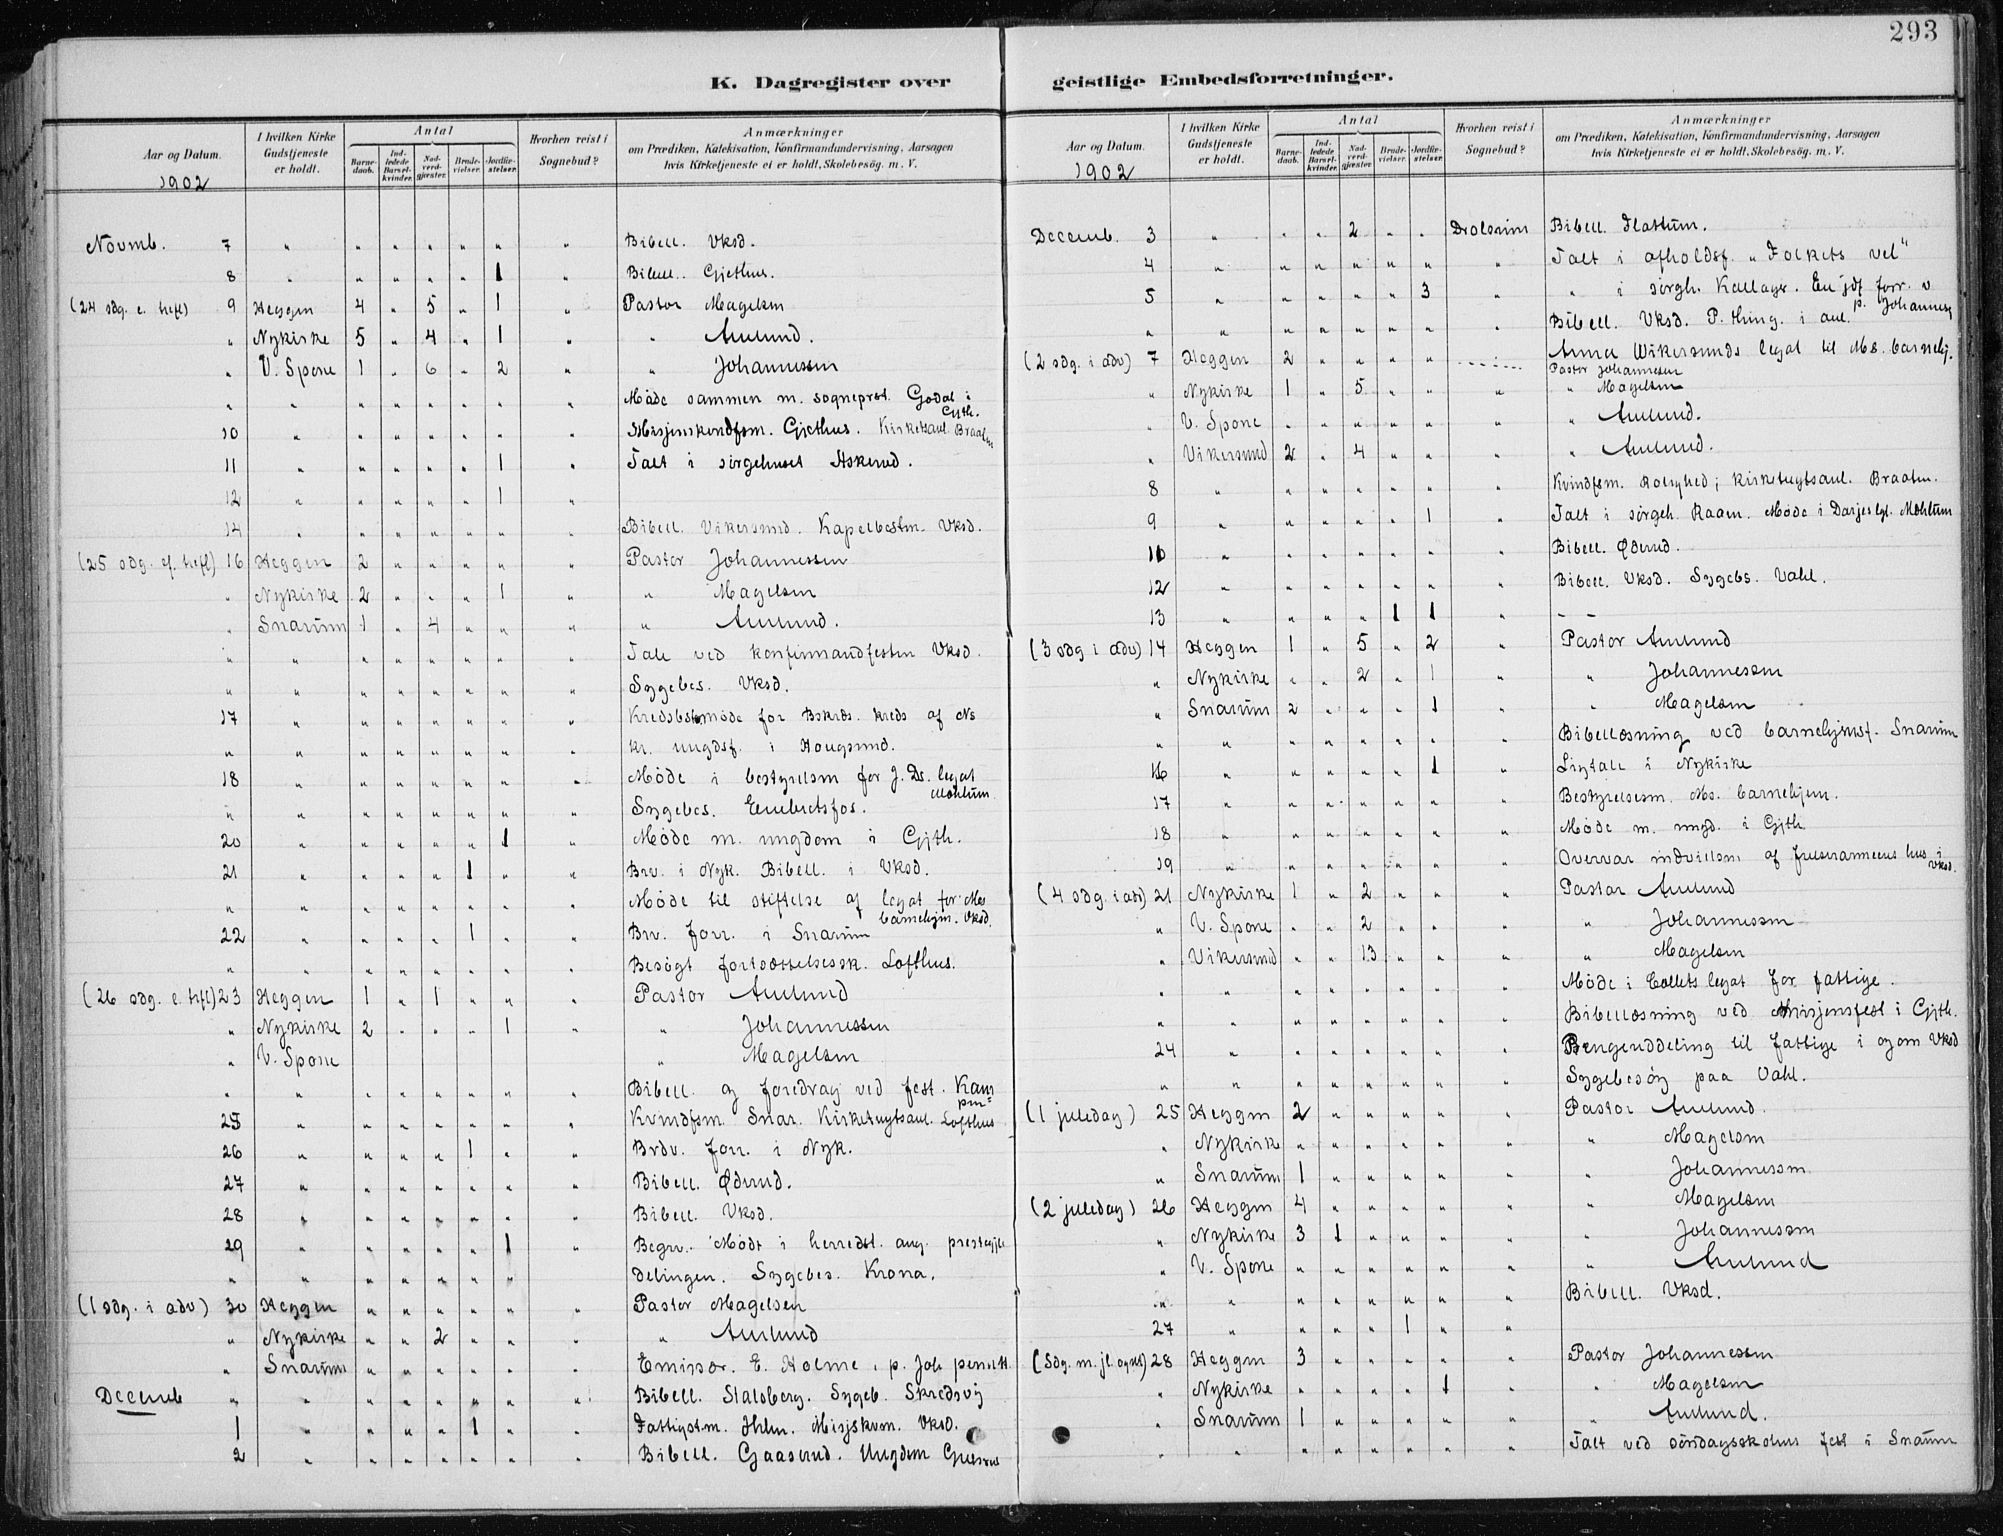 293
K. Dagregister over geistlige Embedsforretninger.
Aar og Datum.
I hvilken Kirke Gudstjeneste er holdt.
Antal
Barnedaab.
Indledede Barselkvinder.
Nadverdgjæster.
Brudevielser.
Jordfæstelser.
Hvorhen reist i Sognebud?
Anmærkninger
om Prædiken, Katekisation, Konfirmandundervisning, Aarsagen
hvis Kirketjeneste ei er holdt, Skolebesøg. m. V.
1902
Novmb. 7 " " " " " " " Bibell. Vksd.
8 " " " " " 1 " Bibell. Gjethus.
(24 sdg. e. trefl) 9 Heggen 4 " 5 " 1 " Pastor Magelsen
" Nykirke 5 " 4 " 1 " " Aulund.
" V. Spone 1 " 6 " 2 " " Johannessen
" " " " " " " " Møde sammen m. sogneprst. Godal i Gjth.
10 " " " " " " " Misjonskvindfsm. Gjethus. Kirketaul. Braaten
11 " " " " " 1 " Talt i sørgehuset Askerud.
12 " " " " " 1 "
14 " " " " " " " Bibell. Vikersund. Kapelbestm. Vksd.
(25 sdg. ef. trefl) 16 Heggen 2 " " " " " Pastor Johannessen
" Nykirke 2 " " " 1 " " Magelsen
" Snarum 1 " 4 " " " " Aulund.
" " " " " " " " Tale ved konfirmandfesten Vksd.
" " " " " " " " Sygebes. Vksd.
17 " " " " " " " Kredsbstmøde for Bskrds. kreds af Ns
" " " " " " " " kr. ungdsf. i Hougsund.
18 " " " " " " " Møde i bestyrelsen for J. Ds. legat Mohlum
" " " " " " " " Sygebes. Embretsfos.
20 " " " " " 1 " Møde m. ungdom i Gjth.
21 " " " " 1 " " Brv. i Nyk. Bibell. i Vksd.
" " " " " " " " Møde til stiftelse af legat for Ms barnehjm. Vksd.
22 " " " " 1 " " Brv. forr. i Snarum
" " " " " " " " Besøgt fortsættelsessk. Lofthus.
(26 sdg. e. trfl) 23 Heggen 1 " 1 " " " Pastor Aulund
" Nykirke 2 " " " 1 " " Johannessen
" V. Spone " Magelsen
" " " " " " " " Bibell. og foredrag ved fest. Kam
25 " " " " " " " Kvindfsm. Snar. Kirketugtsaul. Lofthus
26 " " " " 1 " " Brdv. forr. i Nyk.
27 " " " " " " " Bibell. Øderud.
28 " " " " " " " Bibell. Vksd.
29 " " " " " 1 " Begrv. Mødt i herredst. ang. prestegjls
" " " " " " " " delingen. Sygebes. Krona.
(1 sdg. i adv) 30 Heggen " " " " " " Pastor Magelsen
" Nykirke " " 2 " " " " Aulund
" Snarum " " " " " " Emissær. E. Holme, p. Joh
Decemb " " " " " " " " Bibell. Stalsberg. Sygeb. Skredsvig
1 " " " " 1 " " Fattigstm. Ihlen. Misjskvm. Vksd.
2 " " " " " " " Bibell. Gaaserud. Ungdom
geistlige Embedsforretninger.
Aar og Datum.
I hvilken Kirke Gudstjeneste er holdt.
Antal
Barnedaab.
Indledede Barselkvinder.
Nadverdgjæster.
Brudevielser.
Jordfæstelser.
Hvorhen reist i Sognebud?
Anmærkninger
om Prædiken, Katekisation, Konfirmandundervisning, Aarsagen
hvis Kirketjeneste ei er holdt, Skolebesøg. m. V.
1902
Decemb. 3 " " " 2 " " Drolsrum Bibell. Flattum.
4 " " " " " " " Talt i afholdsf. "Folkets vel"
5 " " " " " 3 " " i sørgh. Kallager. En jdf. forr. v p. Johannes
" " " " " " " " Bibell. Vksd. P. thing. i aul.
(2 sdg. i adv) 7 Heggen 2 " " " " Anna Wikersunds legat til Ms. barnehj.
Pastor Johannessen
" Nykirke 1 " 5 " " " " Magelsen
" V. Spone " " " " " " " Aulund.
" Vikersund 2 " 4 " " " " Aulund.
8 " " " " " " " Kvindfsm. Rolighed; kirketugtsaul. Braaten.
9 " " " " " 1 " Talt i sørgeh. Raaen. Møde i Darjes lgt. Mohlum
10 " " " " " " " Bibell. Øderud.
12 " " " " " " " Bibell. Vksd. Sygebs. Vahl.
13 " " " " 1 1 " - -
(3 sdg i adv) 14 Heggen 1 " 5 " 2 " Pastor Aulund
" Nykirke " " 2 " 1 " " Johannessen
" Snarum 2 " " " 1 " " Magelsen
" " " " " " " " Bibellæsning ved barnehjmsf. Snarum
16 " " " " " 1 " Ligtale i Nykirke
17 " " " " " " " Bestyrelsesm. Ms. barnehjem.
18 " " " " " " " Møde m. ungd. i Gjth
19 " " " " " " " Overvar indvielsen af frelsesarmeens hus i Vksd.
(4 sdg. i adv) 21 Nykirke 1 " 2 " " " Pastor Aulund
" V. Spone " " 2 " " " " Johannessen
" Vikersund " " 13 " " " " Magelsen
" " " " " " " " Møde i Collets legat for fattige.
" " " " " " " " Bibellæsning ved Misjonsfest i Gjth.
24 " " " " " " " Pengeuddeling til fattige i og om Vksd
" " " " " " " " Sygebesøg paa Vahl.
(1 juledag) 25 Heggen 2 " " " " " Pastor Aulund.
" Nykirke " " " " " " " Magelsen
" Snarum 1 " " " " " " Johannessen
(2 juledag) 26 Heggen 4 " " " " " " Magelsen
" Nykirke 3 1 " " " " " Johannessen
" V. Spone " " " " " " " Aulund
" " " " " " " " Bibell. Vksd.
27 " " " " 1 " "
(Sdg. m. jl. og nt) 28 Heggen 3 " " " " " Pastor Johannessen
" Nykirke " " " " 1 " " Magelsen
" Snarum 1 " " " " " " Aulund.
" " " " " " " " Talt ved søndagsskolens fest i Snarum